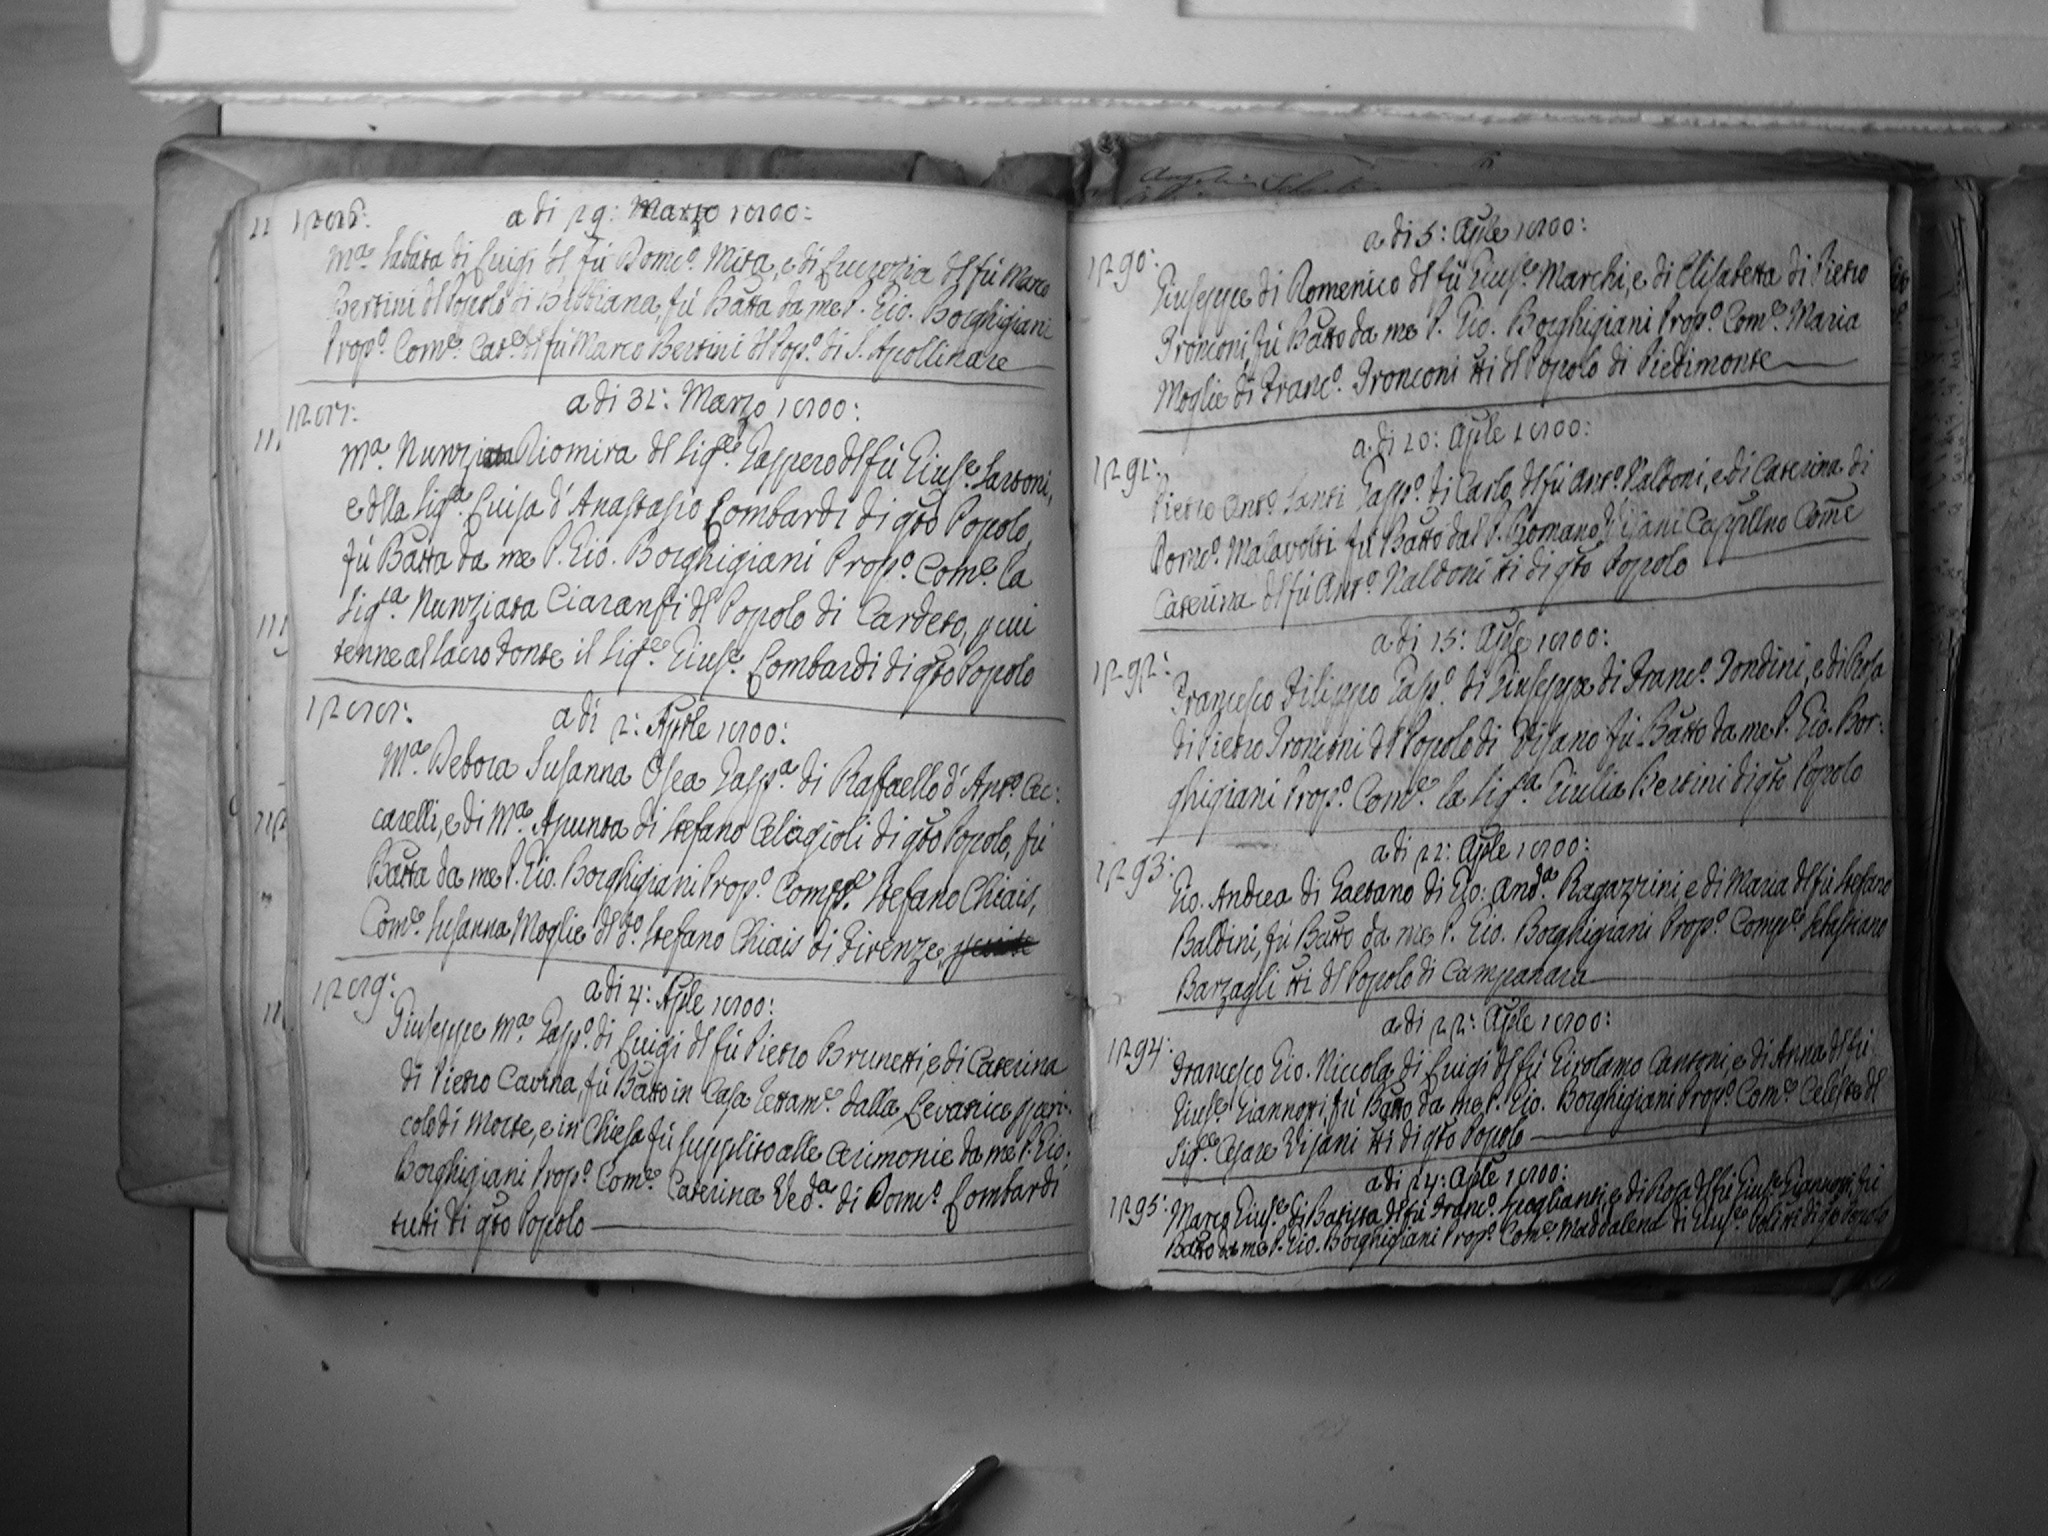 1286:
a di 29: Marzo 1800:
Mª Sabata di Luigi dl fù Domco. Mita, e di Lucrezia dl fù Marco
Bertini dl Popolo di Bibbiana, fù Batta da me P. Gio. Borghigiani
Propo. Come. Cate. dl fù Marco Bertini dl Popo. di S. Apollinare
1287:
a di 31: Marzo 1800:
Mª Nunzi Diomira dl Sigre. Gasparo dl fù Giuse. Sartoni,
e dlla Sigª. Luisa d'Anastasio Lombardi di qto Popolo,
fù Batta da me P. Gio. Borghigiani Propo. Come. la
Sigª. Nunziata Ciaranfi dl Popolo di Cardeto, p cui
tenne al sacro Fonte il Sigre. Giuse. Lombardi di qto Popolo
1288:
a di 2: Aprle 1800:
Mª Debora Susanna Osea Gaspª. di Raffaello d'Anto. Cec:
carelli, e di Mª Assunta di Stefano Celegioli di qto Popolo, fù
Batta da me P. Gio. Borghigiani Propo. Compe. Stefano Chiais,
Come. Susanna Moglie dl do. Stefano Chiais di Firenze
1289:
a di 4: Aprle 1800:
Giuseppe Mª Gaspo. di Luigi dl fù Pietro Brunetti, e di Caterina
di Pietro Cavina, fù Batto in Casa dalla Levatrice p peri:
colo di Morte, e in Chiesa fù supplito alle Cerimonie da me P. Gio.
Borghigiani Propo. Come. Caterina Vedª. di Domco. Lombardi
tutti di qto Popolo
a di 5: Aprle 1800:
1290:
Giuseppe di Domenico dl fù Giuse. Marchi, e di Elisabetta di Pietro
Tronconi fù Batto da me P. Gio. Borghigiani Propo. Come. Maria
Moglie di Franco. Tronconi tti dl Popolo di Piedimonte
a di 10: Aprle 1800:
1291:
Pietro Anto. Santi Gaspo. di Carlo dl fù Anto. Naldoni, e di Caterina di
Domco. Malavolti fù Batto dal P. Romano Visani Cappllno Come
Caterina dl fù Anto. Naldoni tti di qto Popolo
a di 15: Aprle 1800:
1292:
Francesco Filippo Gaspo. di Giuseppe di Franco. Tondini, e di Rosa
di Pietro Tronconi dl Popolo di Visano fù Batto da me P. Gio. Bor:
ghigiani Propo. Come. la Sigª. Giulia Bertini di qto Popolo
a di 22: Aprle 1800:
1293:
Gio. Andrea di Gaetano di Gio: Andª. Ragazzini, e di Maria dl fù Stefano
Baldini, fù Batto da me P. Gio. Borghigiani Propo. Compe. Sebastiano
Barzagli tti dl Popolo di Campanara
a di 22: Aprle 1800:
1294:
Francesco Gio. Niccola di Luigi dl fù Girolamo Cantoni, e di Anna dl fù
Giuse. Giannozzi, fù Batto da me P. Gio. Borghigiani Propo. Come. Celeste dl
Sigre. Cesare Visani tti di qto Popolo
a di 24: Aprle 1800:
1295:
Marco Giuse. di Batista dl fù Franco. Spoglianti, e di Rosa dl fù Giuse. Giannozzi, fù
Batto da me P. Gio. Borghigiani Propo. Come. Maddalena di Giuse. Poli tti di qto Popolo